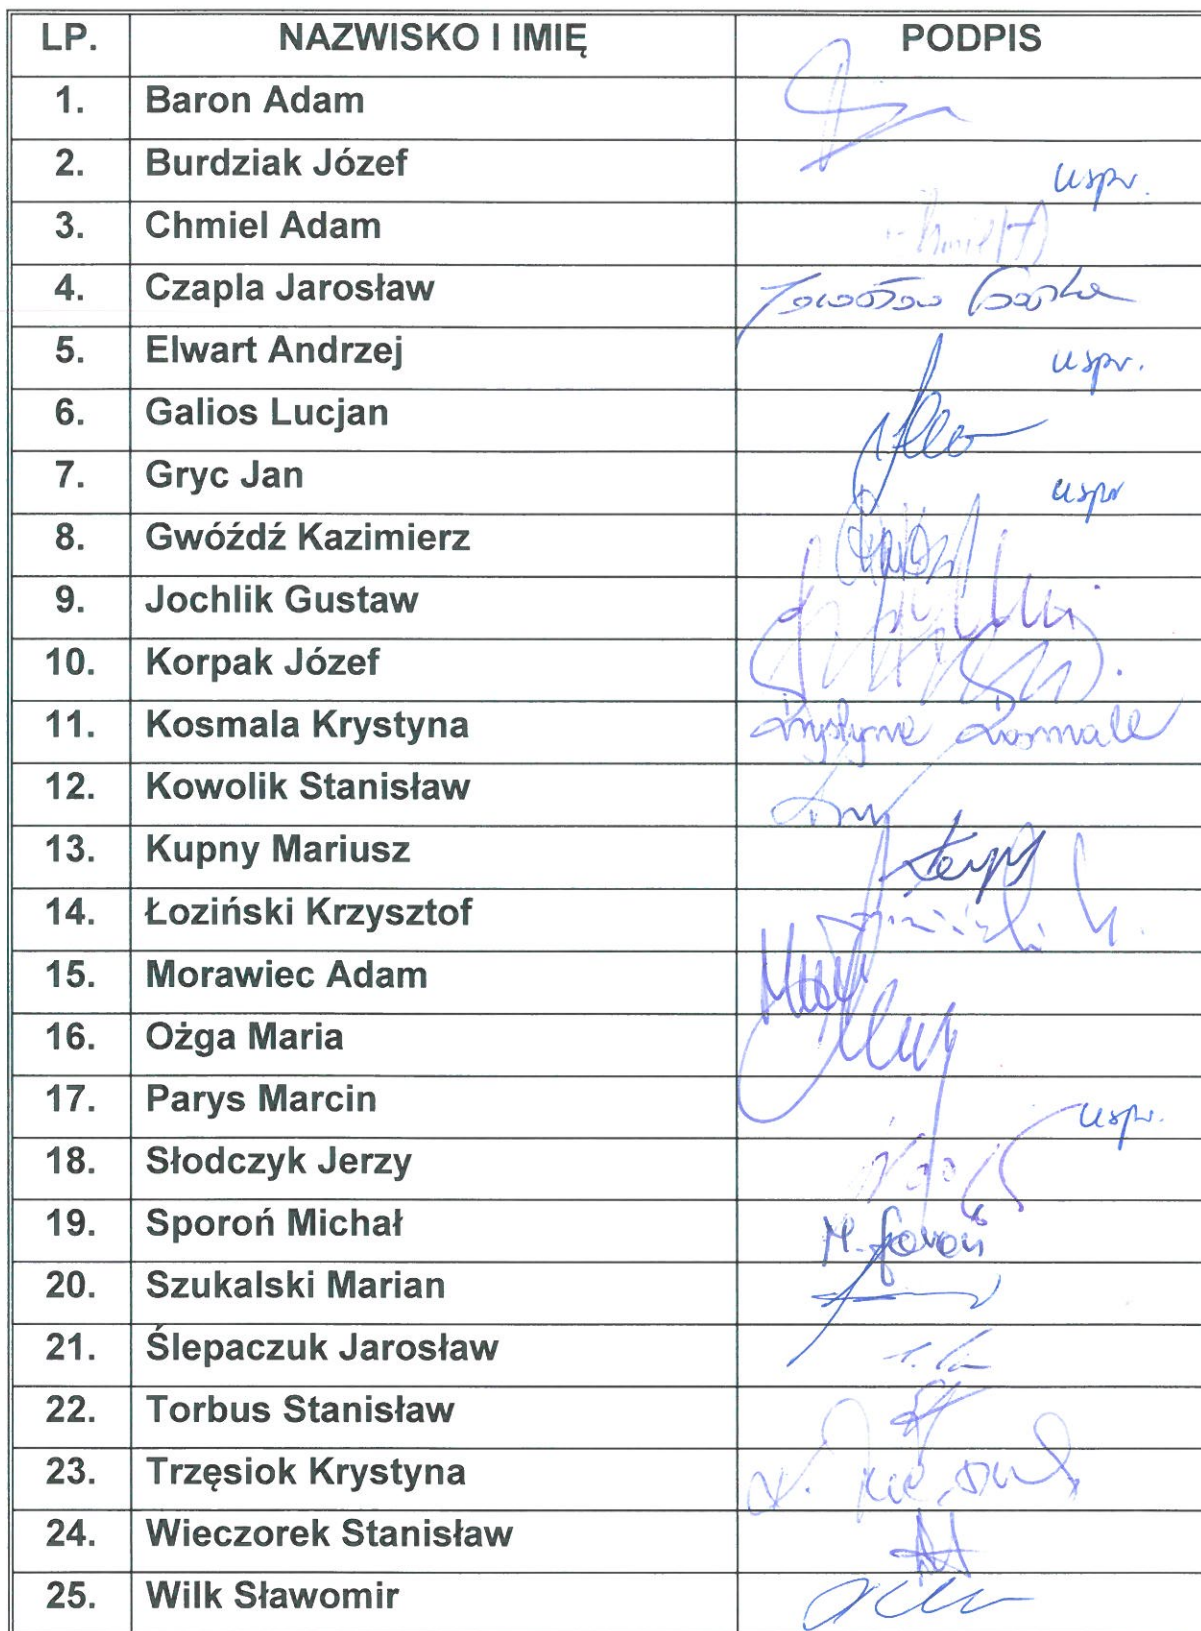 LP. NAZWISKO I IMIĘ PODPIS
1. Baron Adam
2. Burdziak Józef uspr.
3. Chmiel Adam
4. Czapla Jarosław Jarosław Czapla
5. Elwart Andrzej uspr.
6. Galios Lucjan
7. Gryc Jan uspr
8. Gwóźdź Kazimierz
9. Jochlik Gustaw
10. Korpak Józef
11. Kosmala Krystyna Krystyna Kosmala
12. Kowolik Stanisław
13. Kupny Mariusz
14. Łoziński Krzysztof
15. Morawiec Adam
16. Ożga Maria
17. Parys Marcin uspr.
18. Słodczyk Jerzy
19. Sporoń Michał M. Sporoń
20. Szukalski Marian
21. Ślepaczuk Jarosław
22. Torbus Stanisław
23. Trzęsiok Krystyna
24. Wieczorek Stanisław
25. Wilk Sławomir